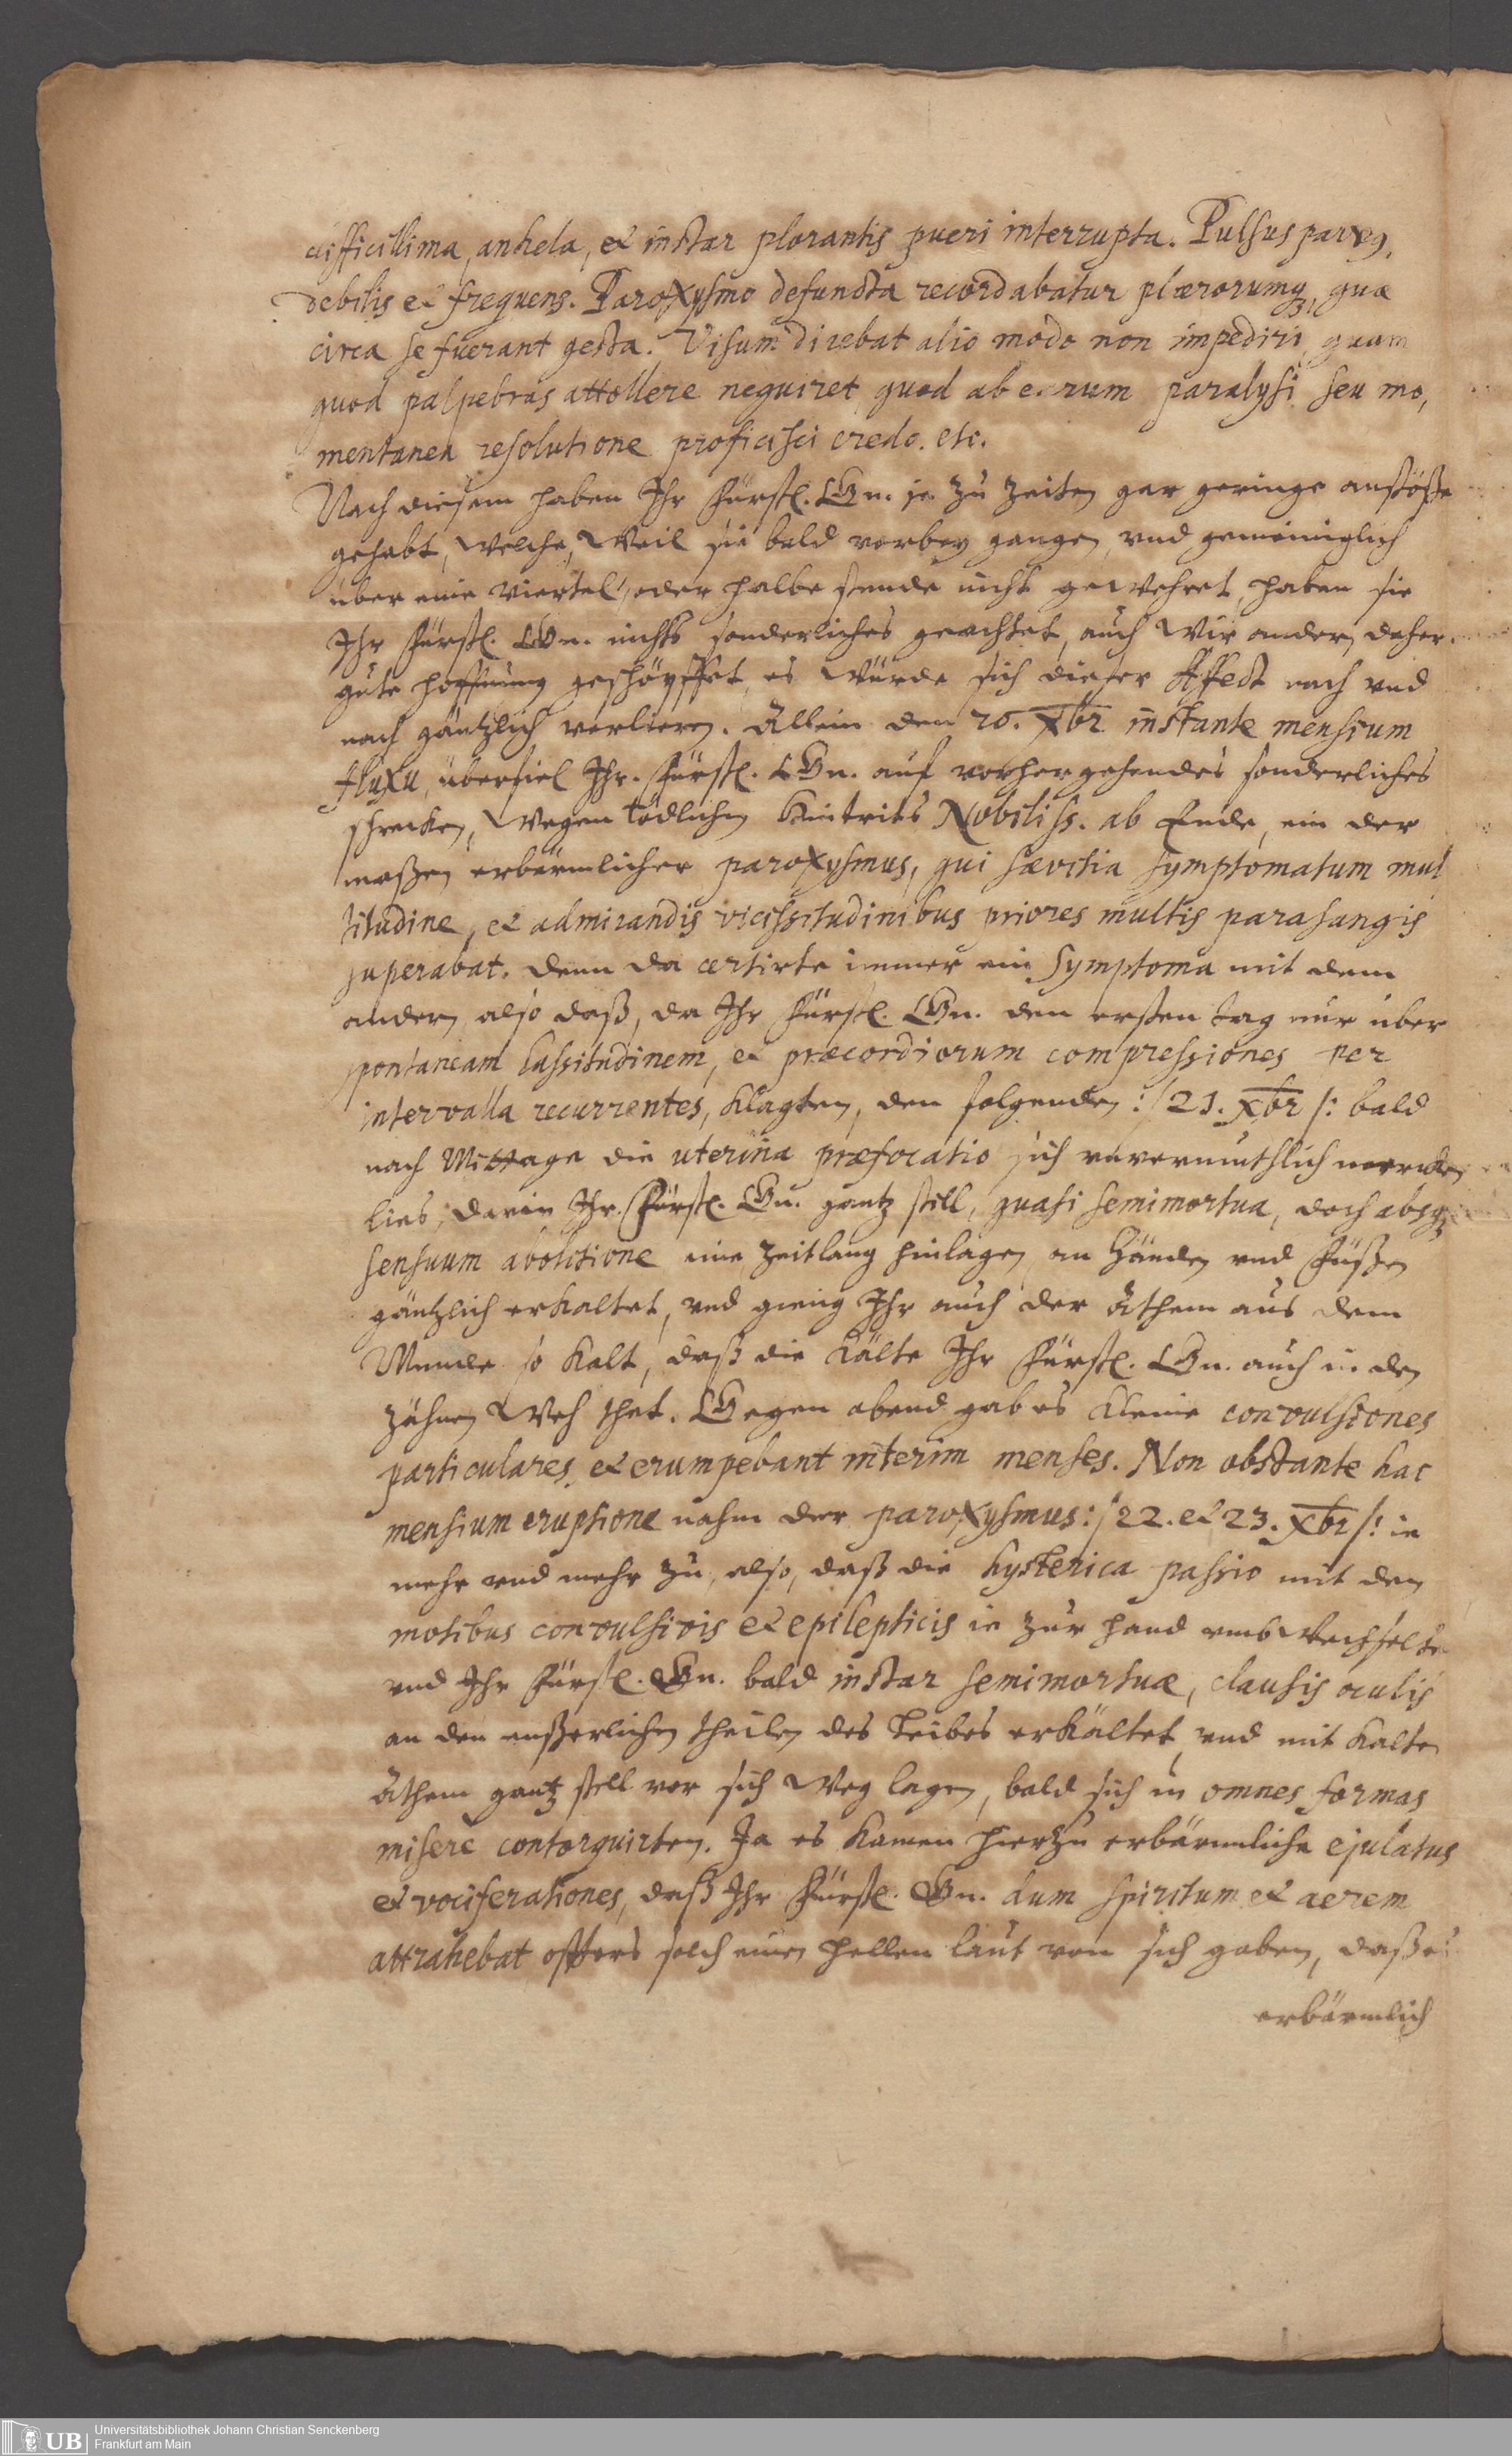 difficillima, anhela, et instar plorantis pueri interrupta. Pulsus parvus,
debilis et frequens. Paroxysmo defuncta recordabatur plærorumq3, quæ
circa se fuerant gesta. Visum dicebat alio modo non impediri, quam
quod palpebras attollere nequiret, quod ab earum paralysi seu mo,
mentanea resolutione proficisci credo. etc.
Nach diesem haben Ihr Fürstl. Gn. je zu Zeiten gar geringe anstösse
gehabt, welche, weil sie bald vorbey gangen, vnd gemeiniglich
über eine viertel, oder halbe stunde nicht gewehret, haben sie
Ihr Fürstl. Gn. nichts sonderliches geachtet, auch wir andern daher
gute hoffnung geschöpffet, es würde sich dieser Affect nach vnd
nach gäntzlich verlieren. Allein den 20. Xbr instante mensium
fluxu, überfiel Ihr. Fürstl. Gn. auf vorhergehendes sonderliches
schrecken, wegen tödlichen hintrits Nobiliss. ab Ende, ein der
massen erbärmlicher paroxysmus, qui sævitia symptomatum mul
titudine, et admirandis vicissitudinibus priores multis parasangis
superabat. denn da certirte immer ein Symptoma mit dem
andern, also daß, da Ihr Fürstl. Gn. den ersten tag nur über
spontaneam lassitudinem, et præcordiorum compressiones per
intervalla recurrentes, klagten, den folgenden :/21. Xbr/: bald
nach Mittage die uterina præfocatio sich vnvermuthlich mercken
lies, darin Ihr. Fürstl. Gn. gantz still, quasi semimortua, doch absq3
sensuum abolitione eine zeitlang hinlagen, an Händen vnd Füßen
gäntzlich erkaltet, vnd gieng Ihr auch der Athem aus dem
Munde so kalt, daß die Kälte Ihr Fürstl. Gn. auch in den
zähnen weh thet. Gegen abend gab es kleine convulsiones
particulares, et erumpebant interim menses. Non obstante hac
mensium eruptione nahm der paroxysmus :/22. et 23. Xbr/: ie
mehr vnd mehr zu, also, daß die hysterica passio mit den
motibus convulsivis et epilepticis ie zur hand vmbwechselte
vnd Ihr Fürstl. Gn. bald instar semimortuæ, clausis oculis
an den eußerlichen theilen des Leibes erkältet, vnd mit kalten
Athem gantz still vor sich weg lagen, bald sich in omnes formas
misere contorquirten. Ja es kamen hierzu erbärmliche ejulatus
et vociferationes, daß Ihr Fürstl. Gn. dum spiritum et aerem
attrahebat offters solch einen hellen laut von sich gaben, daß es
erbärmlich
UB Universitätsbibliothek Johann Christian Senckenberg
Frankfurt am Main